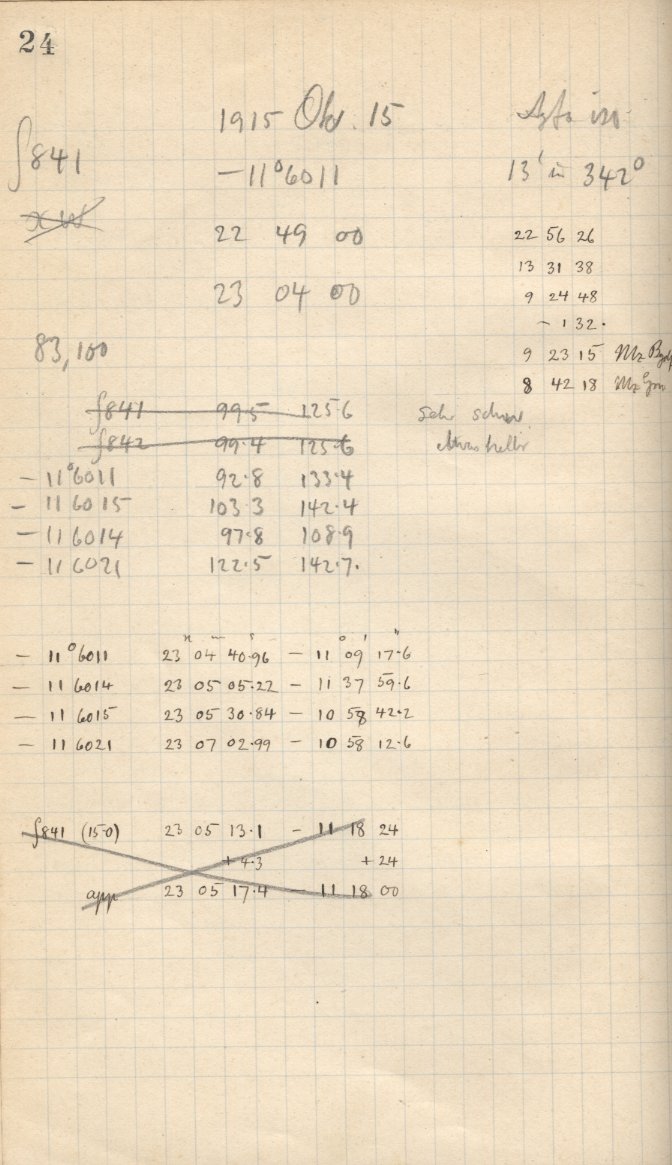 24
1915 Okt. 15
∫841 −11°6011 13' in 342°
22 49 00 22 56 26
13 31 38
23 04 00 9 24 48
− 1 32.
83,100 9 23 15 Mz
8 42 18 Mz Gm
∫841 99.5 125.6 Sehr schwer
∫842 99.4 125.6 etwas heller
− 11°6011 92.8 133.4
− 11 6015 103.3 142.4
− 11 6014 97.8 108.9
− 11 6021 122.5 142.7.
h m s ° ' "
− 11°6011 23 04 40.96 − 11 09 17.6
− 11 6014 23 05 05.22 − 11 37 59.6
− 11 6015 23 05 30.84 − 10 58 42.2
− 11 6021 23 07 02.99 − 10 58 12.6
∫841 (15.0) 23 05 13.1 − 11 18 24
+ 4.3 + 24
app 23 05 17.4 − 11 18 00